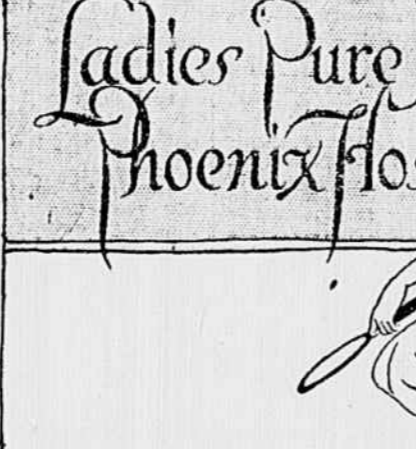 Ladies Pure
Phoenix Hos